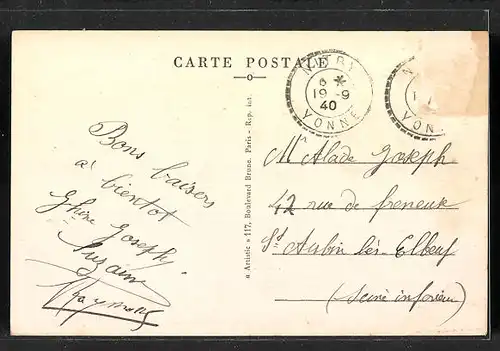 CARTE POSTALE
MÉRY
6 *
19 -9
40
YONNE
YONN
Bons baisers
à bientot
Joseph
Suzanne
Raymond
Mr Alade Joseph
42 rue de freneux
St Aubin les Elbeuf
(Seine inférieure)
« Artistic » 117, Boulevard Brune, Paris - Rep. int.